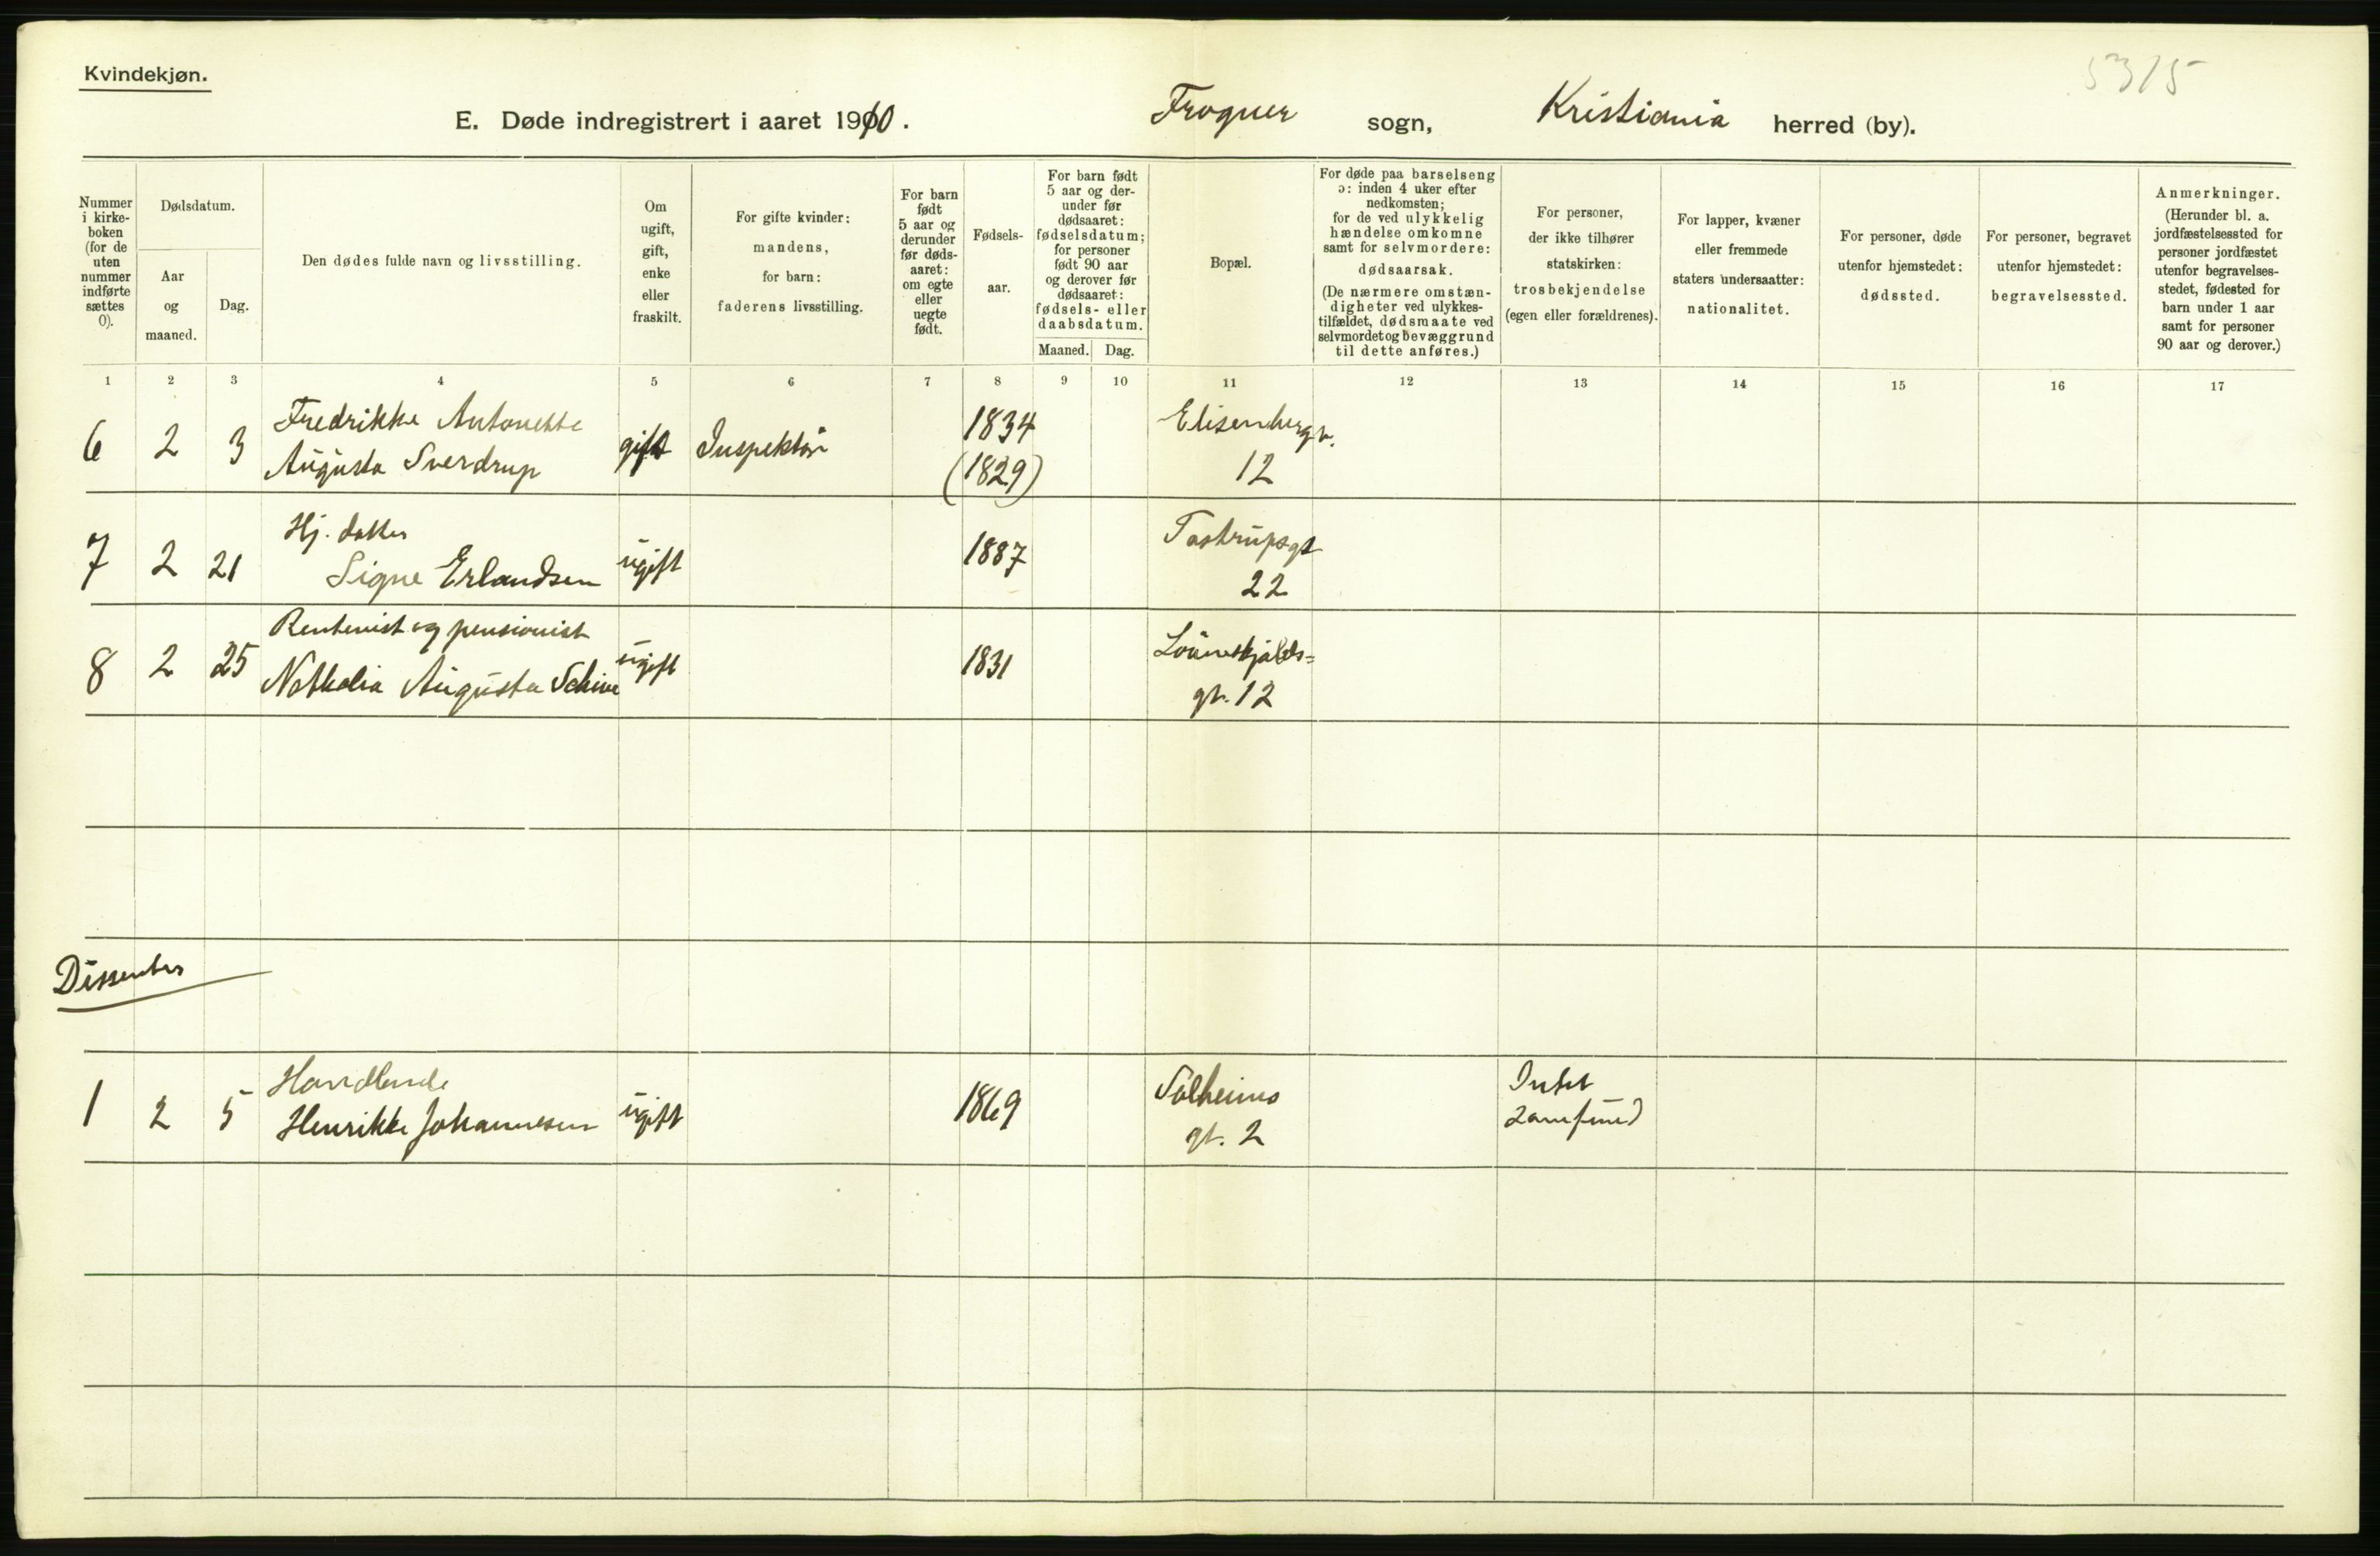 Kvindekjøn.
5315
E. Døde indregistrert i aaret 1910. Frogner sogn, Kristiania herred (by).
Nummer i kirke-boken (for de uten nummer indførte sættes 0).
Dødsdatum.
Aar og maaned.
Dag.
Den dødes fulde navn og livsstilling.
Om ugift, gift, enke eller fraskilt.
For gifte kvinder: mandens, for barn: faderens livsstilling.
For barn født 5 aar og derunder før døds-aaret: om egte eller uegte født.
Fødsels-aar.
For barn født 5 aar og der-under før dødsaaret: fødselsdatum; for personer født 90 aar og derover før dødsaaret: fødsels- eller daabsdatum.
Maaned. Dag.
Bopæl.
For døde paa barselseng ɔ: inden 4 uker efter nedkomsten; for de ved ulykkelig hændelse omkomne samt for selvmordere: dødsaarsak. (De nærmere omstæn-digheter ved ulykkes-tilfældet, dødsmaate ved selvmordet og bevæggrund til dette anføres.)
For personer, der ikke tilhører statskirken: trosbekjendelse (egen eller forældrenes).
For lapper, kvæner eller fremmede staters undersaatter: nationalitet.
For personer, døde utenfor hjemstedet: dødssted.
For personer, begravet utenfor hjemstedet: begravelsessted.
Anmerkninger. (Herunder bl. a. jordfæstelsessted for personer jordfæstet utenfor begravelses-stedet, fødested for barn under 1 aar samt for personer 90 aar og derover.)
1 2 3 4 5 6 7 8 9 10 11 12 13 14 15 16 17
6 2 3 Fredrikke Antonette
Augusta Sverdrup gift Inspektør 1834
(1829) Elisenbergv.
12
7 2 21 Hj. datter
Signe Erlandsen ugift 1887 Tostrupsgt
22
8 2 25 Rentenist og pensionist
Nathalia Augusta Schive ugift 1831 Løvenskjolds=
gt. 12
Dissenter
1 2 5 Handlende
Henrikke Johannesen ugift 1869 Solheims
gt. 2 Intet
samfund